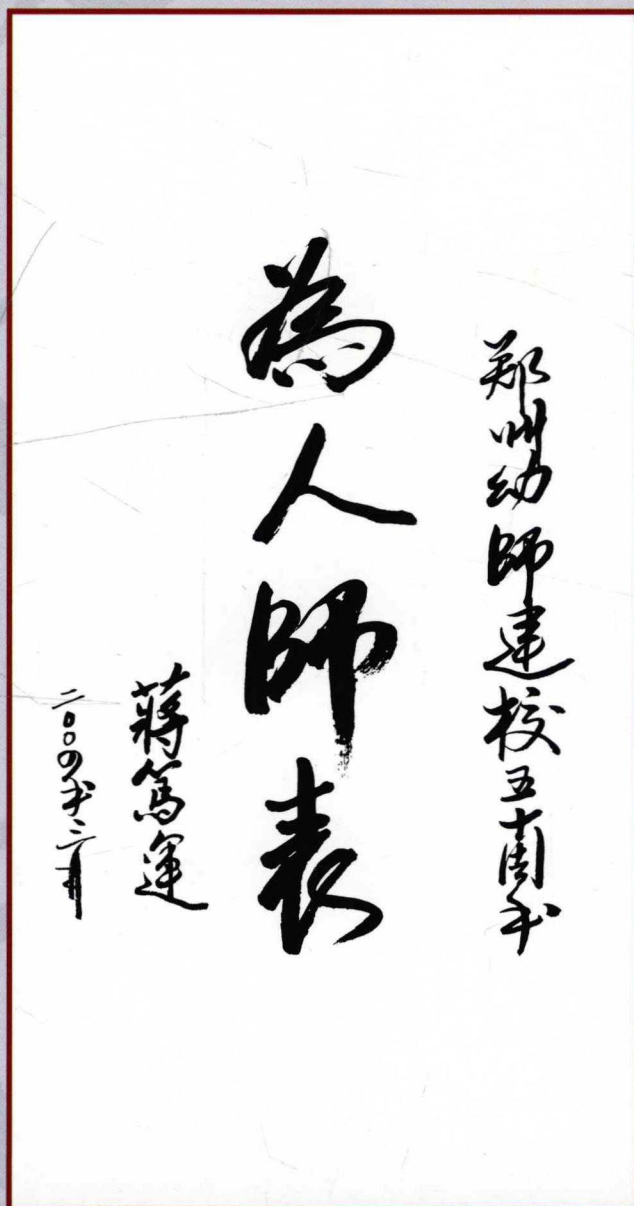 郑州幼師建校五十周年
為人師表
蔣篤運
二〇〇四年三月